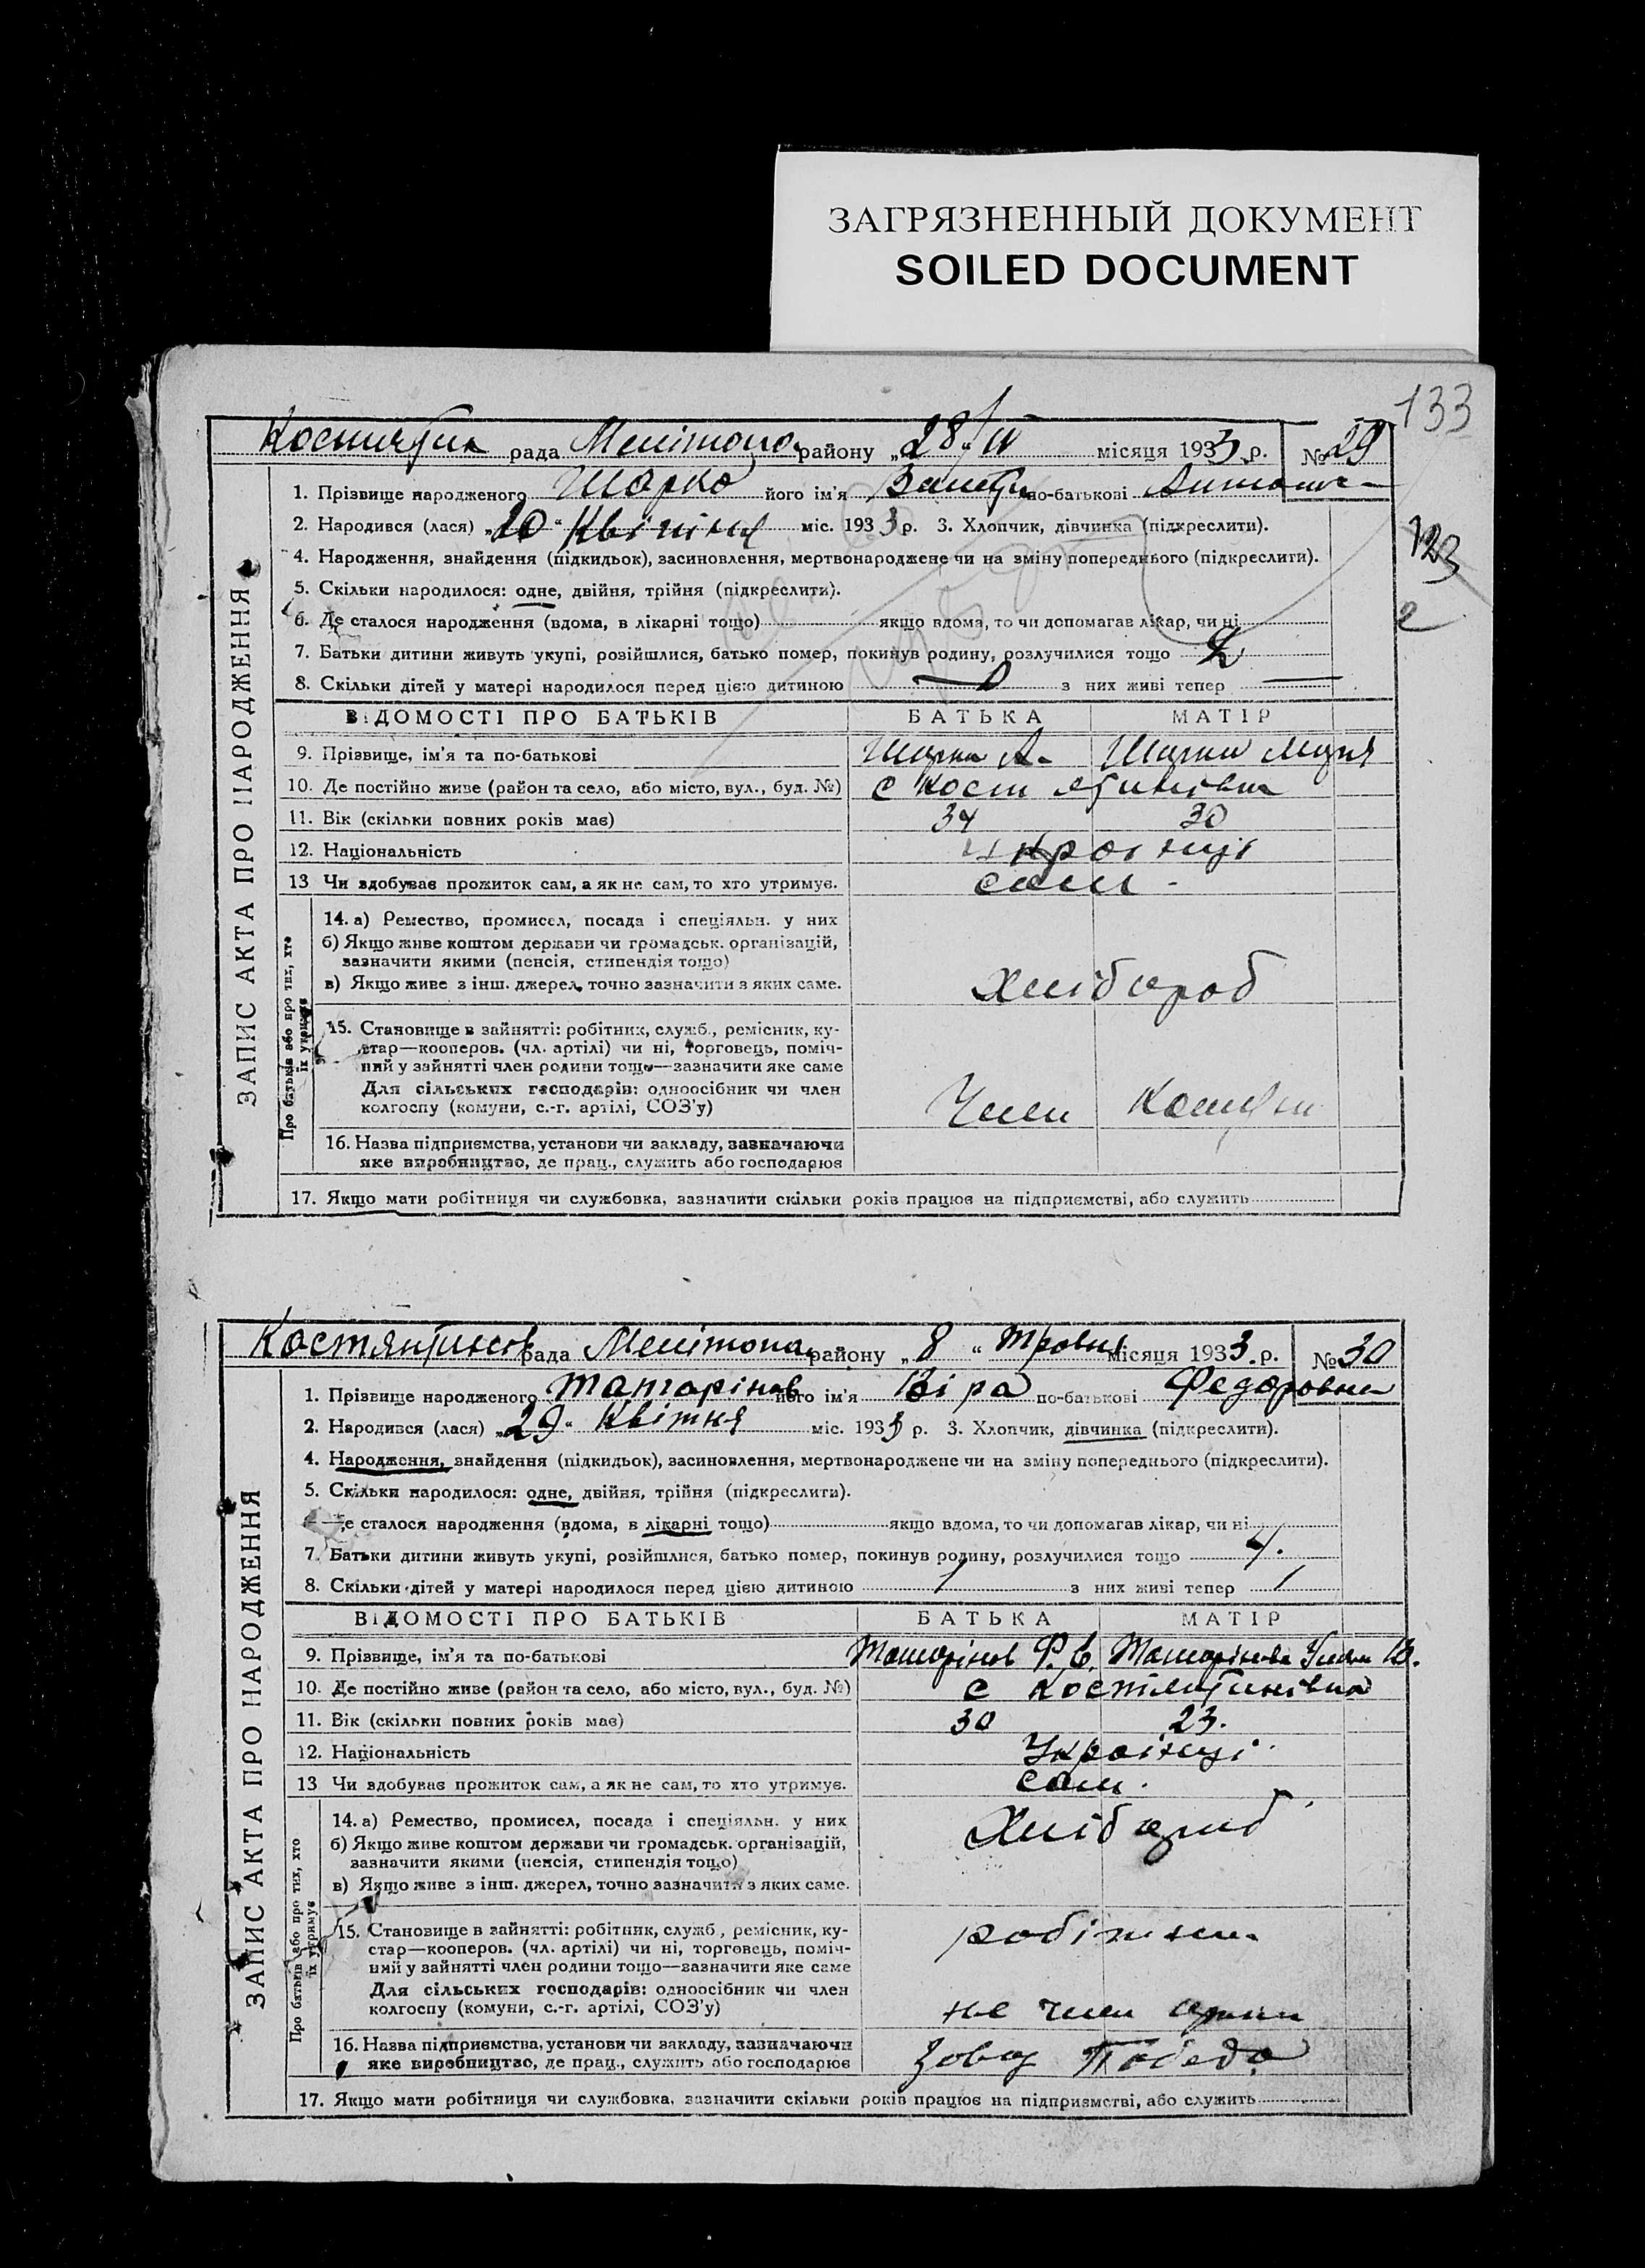 ЗАГРЯЗНЕННЫЙ ДОКУМЕНТ
SOILED DOCUMENT
133
рада Мелітопо району „28/IV місяця 1933 р. № 29
1. Прізвище народженого Шарко його ім'я по-батькові
2. Народився (лася) „20“ Квітня міс. 1933 р. 3. Хлопчик, дівчинка (підкреслити).
123
4. Народження, знайдення (підкидьок), засиновлення, мертвонароджене чи на зміну попереднього (підкреслити).
5. Скільки народилося: одне, двійня, трійня (підкреслити).
2
6. Де сталося народження (вдома, в лікарні тощо) якщо вдома, то чи допомагав лікар, чи ні
7. Батьки дитини живуть укупі, розійшлися, батько помер, покинув родину, розлучилися тощо
8. Скільки дітей у матері народилося перед цією дитиною з них живі тепер —
ВІДОМОСТІ ПРО БАТЬКІВ БАТЬКА МАТІР
9. Прізвище, ім'я та по-батькові Шарко А. Шарко
10. Де постійно живе (район та село, або місто, вул., буд. №) с Костянтинівка
11. Вік (скільки повних років має) 34 30
12. Національність Українці
13 Чи здобуває прожиток сам, а як не сам, то хто утримує. сами
14. а) Ремество, промисел, посада і спеціяльн. у них
б) Якщо живе коштом держави чи громадськ. організацій,
зазначити якими (пенсія, стипендія тощо)
в) Якщо живе з інш. джерел, точно зазначити з яких саме. Хлібороб
15. Становище в зайнятті: робітник, служб., ремісник, ку-
стар—кооперов. (чл. артілі) чи ні, торговець, поміч-
ний у зайнятті член родини тощо—зазначити яке саме
Для сільських господарів: одноосібник чи член
колгоспу (комуни, с.-г. артілі, СОЗ'у) Член
16. Назва підприємства, установи чи закладу, зазначаючи
яке виробництво, де прац., служить або господарює
17. Якщо мати робітниця чи службовка, зазначити скільки років працює на підприємстві, або служить
ЗАПИС АКТА ПРО НАРОДЖЕННЯ
Про батьків або про тих, хто
їх утримує
Костянтинов рада Мелітопо району „8“ травня місяця 1933 р. № 30
1. Прізвище народженого Татарінов його ім'я Віра по-батькові Федоровна
2. Народився (лася) „29“ Квітня міс. 1933 р. 3. Хлопчик, дівчинка (підкреслити).
4. Народження, знайдення (підкидьок), засиновлення, мертвонароджене чи на зміну попереднього (підкреслити).
5. Скільки народилося: одне, двійня, трійня (підкреслити).
е сталося народження (вдома, в лікарні тощо) якщо вдома, то чи допомагав лікар, чи ні
7. Батьки дитини живуть укупі, розійшлися, батько помер, покинув родину, розлучилися тощо У.
8. Скільки дітей у матері народилося перед цією дитиною 1 з них живі тепер 1
ВІДОМОСТІ ПРО БАТЬКІВ БАТЬКА МАТІР
9. Прізвище, ім'я та по-батькові Татарінов Ф. Татарінова
10. Де постійно живе (район та село, або місто, вул., буд. №) с Костянтинівка
11. Вік (скільки повних років має) 30 23.
12. Національність Українці
13 Чи здобуває прожиток сам, а як не сам, то хто утримує. сами.
14. а) Ремество, промисел, посада і спеціяльн. у них Хлібороб
б) Якщо живе коштом держави чи громадськ. організацій,
зазначити якими (пенсія, стипендія тощо)
в) Якщо живе з інш. джерел, точно зазначити з яких саме.
15. Становище в зайнятті: робітник, служб., ремісник, ку- робітник
стар—кооперов. (чл. артілі) чи ні, торговець, поміч-
ний у зайнятті член родини тощо—зазначити яке саме
Для сільських господарів: одноосібник чи член
колгоспу (комуни, с.-г. артілі, СОЗ'у) не член
16. Назва підприємства, установи чи закладу, зазначаючи
яке виробництво, де прац., служить або господарює Завод Победа
17. Якщо мати робітниця чи службовка, зазначити скільки років працює на підприємстві, або служить
ЗАПИС АКТА ПРО НАРОДЖЕННЯ
Про батьків або про тих, хто
їх утримує